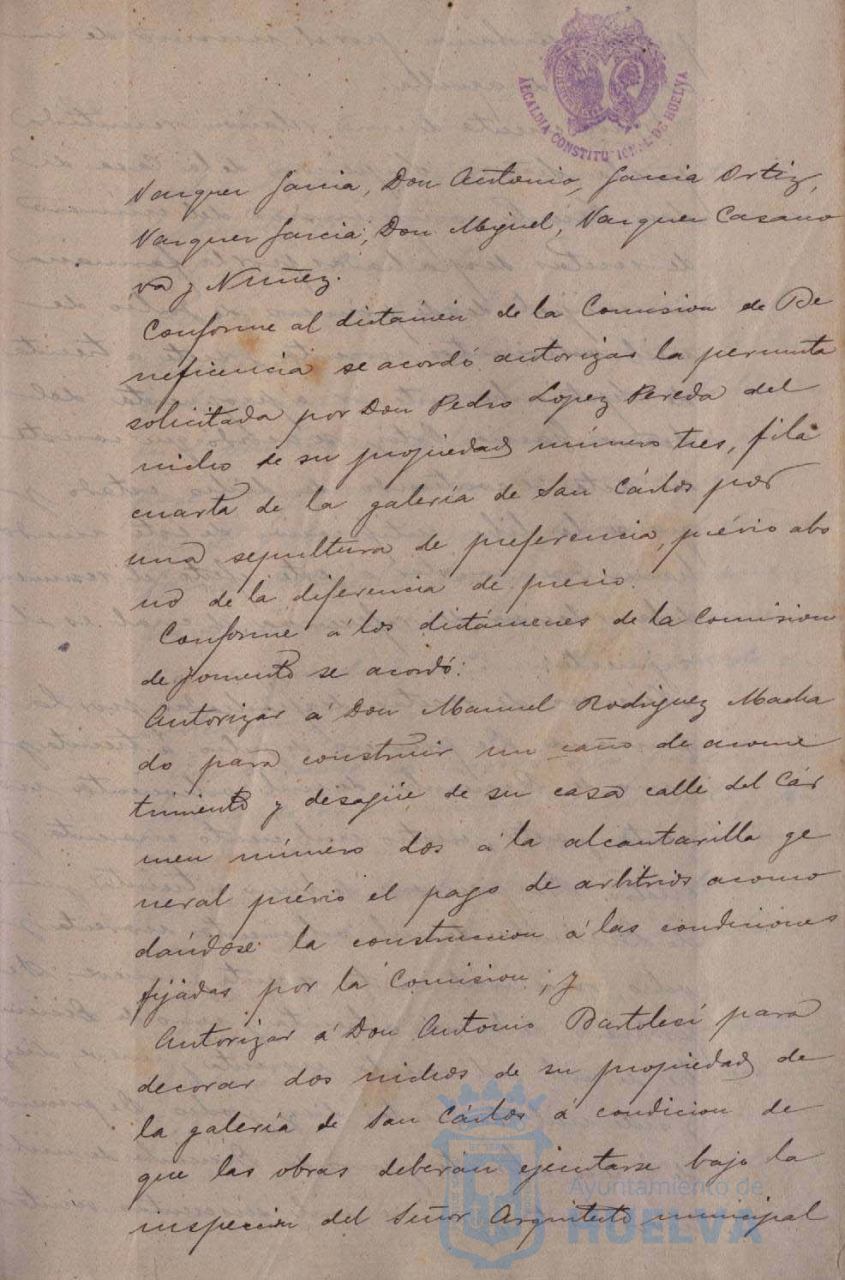 ALCALDIA CONSTITUCIONAL DE HUELVA
Vazquez Garcia, Don Antonio, Garcia Ortiz,
Vazquez Garcia, Don Miguel, Vazquez Casano
va y Nuñez.
Conforme al dictámen de la Comision de Be
neficencia se acordó autorizar la permuta
solicitada por Don Pedro Lopez Pereda del
nicho de su propiedad número tres, fila
cuarta de la galería de San Cárlos por
una sepultura de preferencia, prévio abo
no de la diferencia de precio.
Conforme á los dictámenes de la Comision
de fomento se acordó:
Autorizar á Don Manuel Rodriguez Macha
do para construir un caño de acome
timiento y desagüe de su casa calle del Cár
men número dos á la alcantarilla ge
neral prévio el pago de arbitrios acomo
dándose la construccion á las condiciones
fijadas por la Comision; y
Autorizar á Don Antonio Bartolesi para
decorar dos nichos de su propiedad de
la galería de San Cárlos á condicion de
que las obras deberán ejecutarse bajo la
inspeccion del Señor Arquitecto municipal
Ayuntamiento de
HUELVA